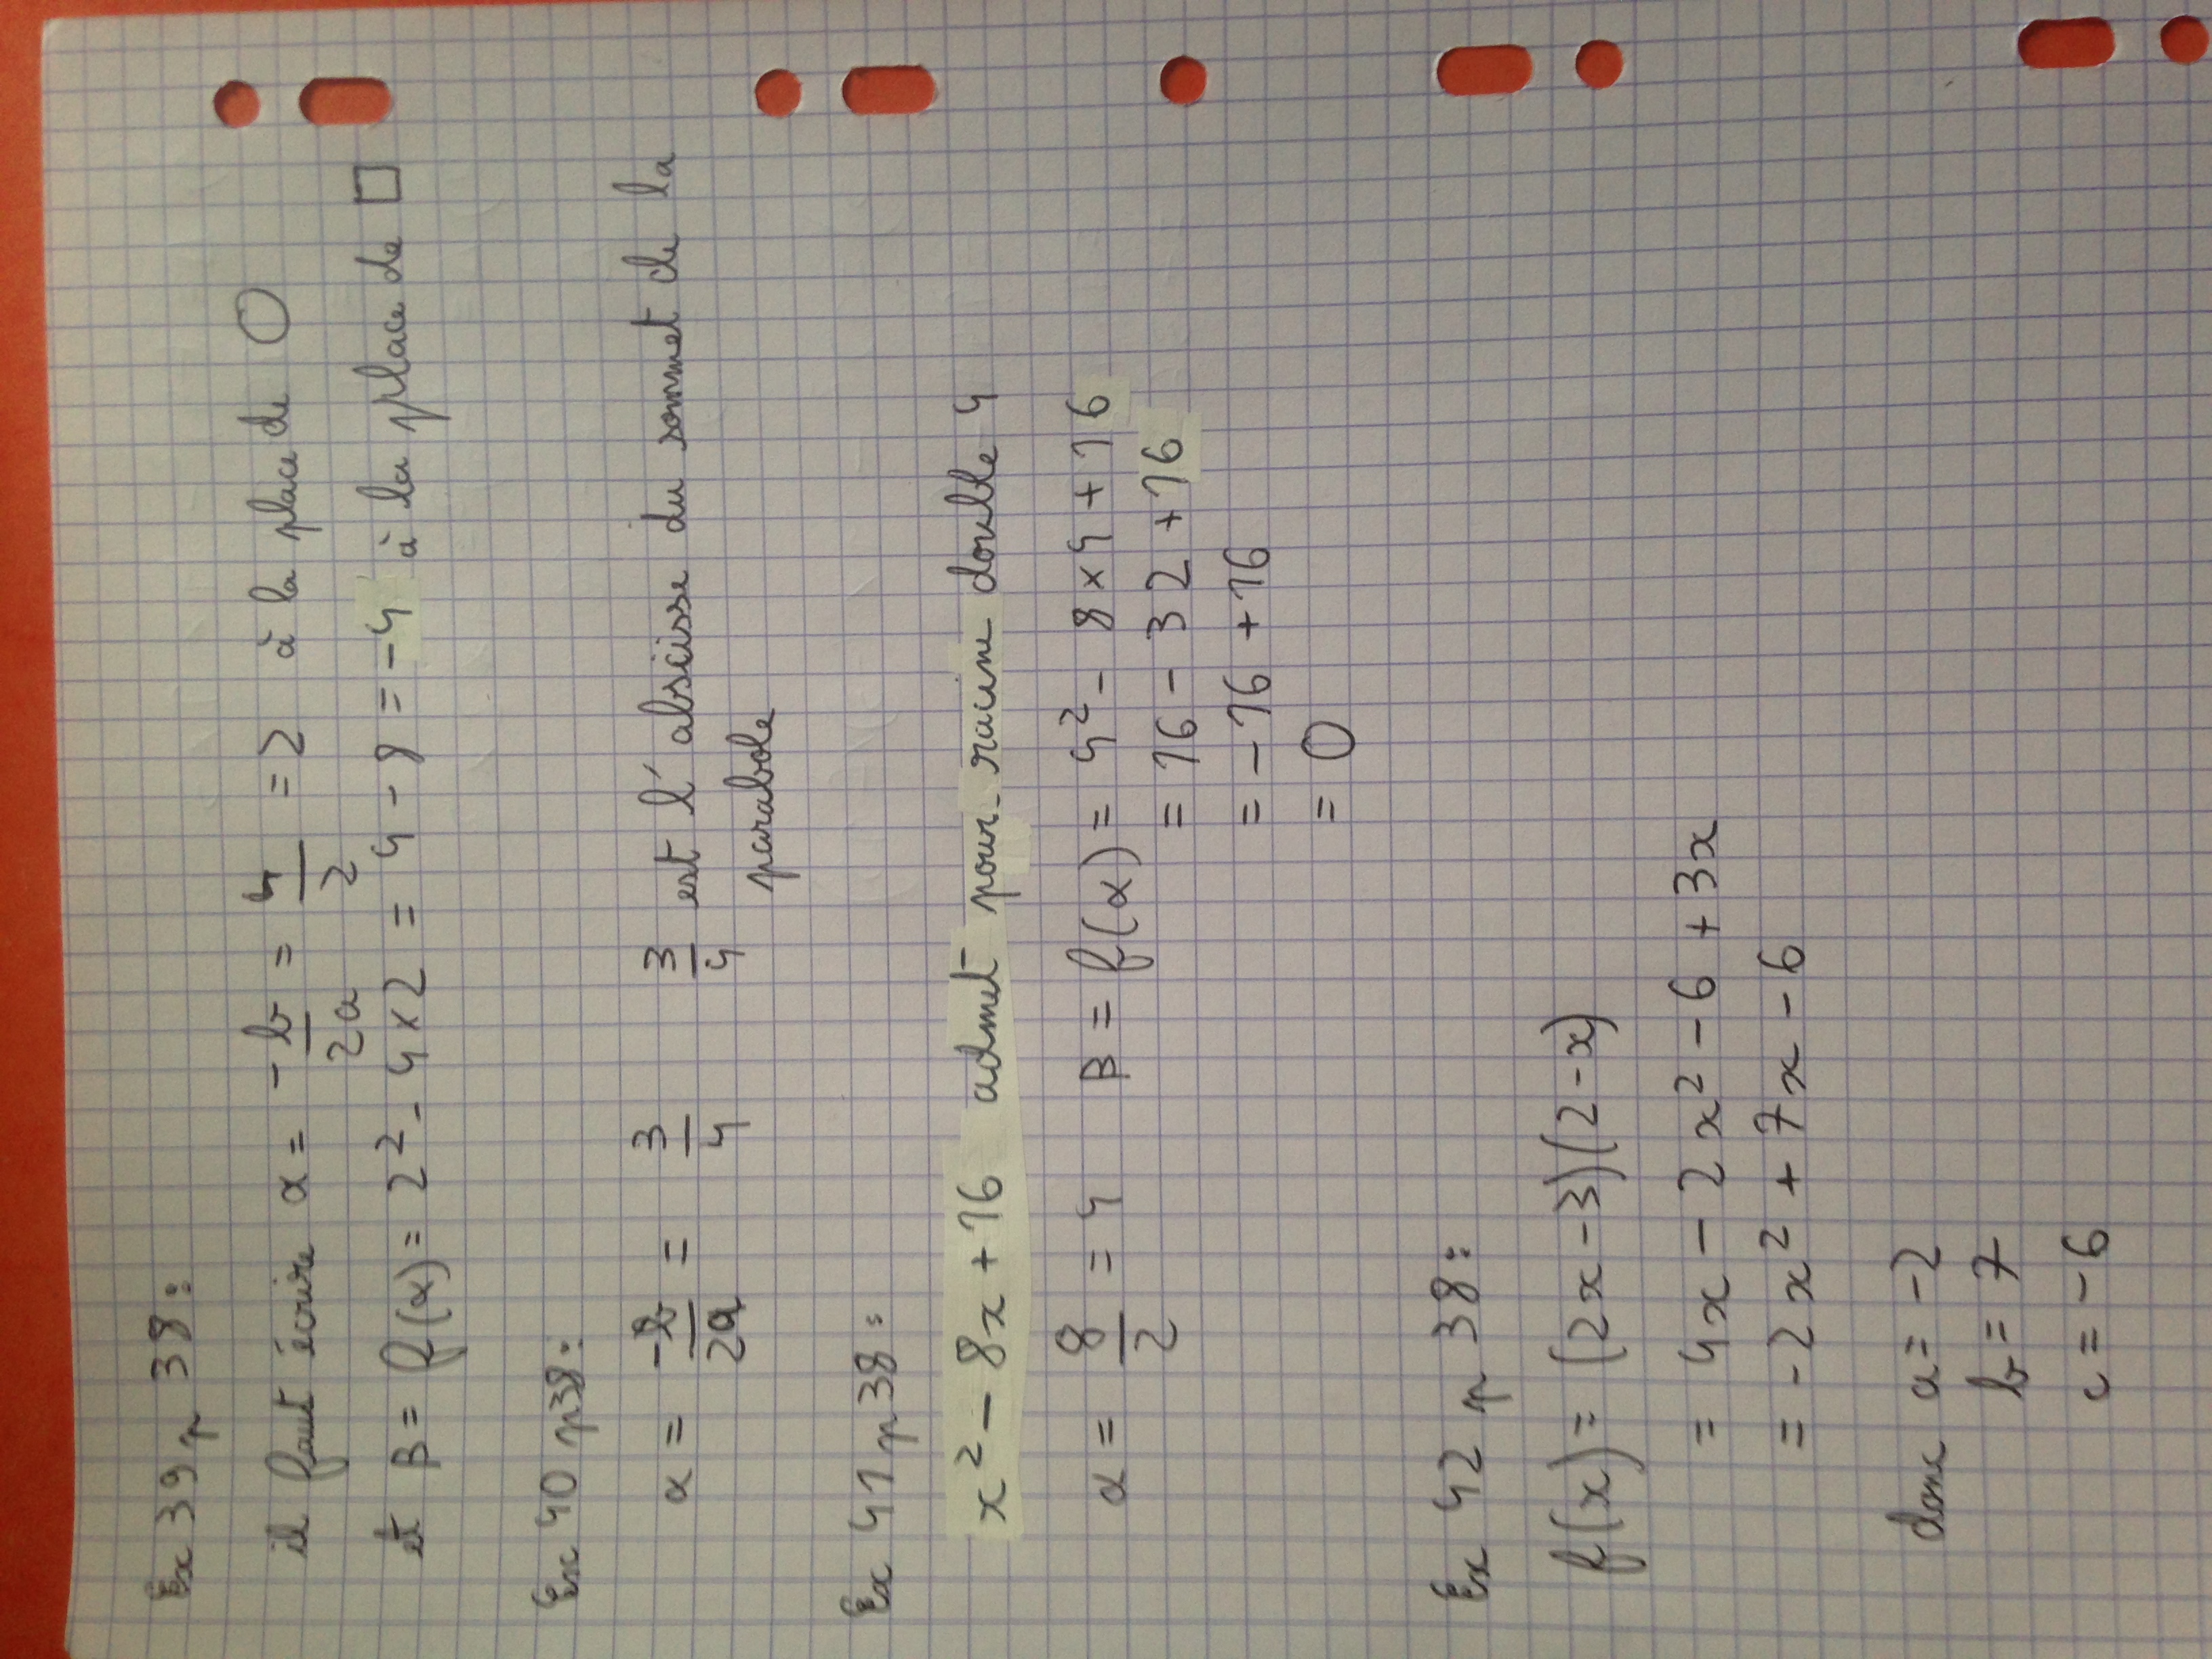 Ex 39 p 38:
il faut écrire α = -b/2a = 4/2 = 2 à la place de ○
et β = f(α) = 2² - 4×2 = 4 - 8 = -4 à la place de □
Ex 40 p38:
α = -b/2a = 3/4   3/4 est l'abscisse du sommet de la
parabole
Ex 41 p38:
x² - 8x + 16 admet pour racine double 4
α = 8/2 = 4   β = f(α) = 4² - 8×4 + 16
= 16 - 32 + 16
= -16 + 16
= 0
Ex 42 p 38:
f(x) = (2x - 3)(2 - x)
= 4x - 2x² - 6 + 3x
= -2x² + 7x - 6
donc a = -2
b = 7
c = -6